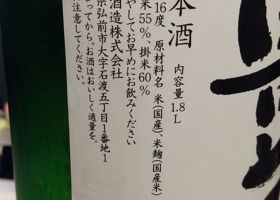 本酒
内容量1.8L
16度 原材料名 米(国産)、米麹(国産米)
米55% 掛米60%
やしてお早めにお飲みください
酒造株式会社
県弘前市大字石渡五丁目1番地1
なってから。お酒はおいしく適量を。
注意してください。